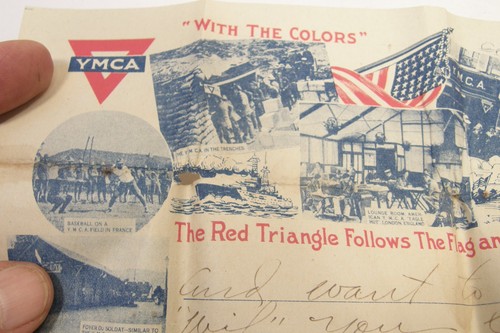 "WITH THE COLORS"
YMCA
Y.M.C.A. IN THE TRENCHES
YMCA
BASEBALL ON A
Y.M.C.A. FIELD IN FRANCE
LOUNGE ROOM, AMER-
ICAN Y.M.C.A. "EAGLE
HUT", LONDON, ENGLAND
The Red Triangle Follows The Flag an
and want to
FOYER DU SOLDAT-SIMILAR TO